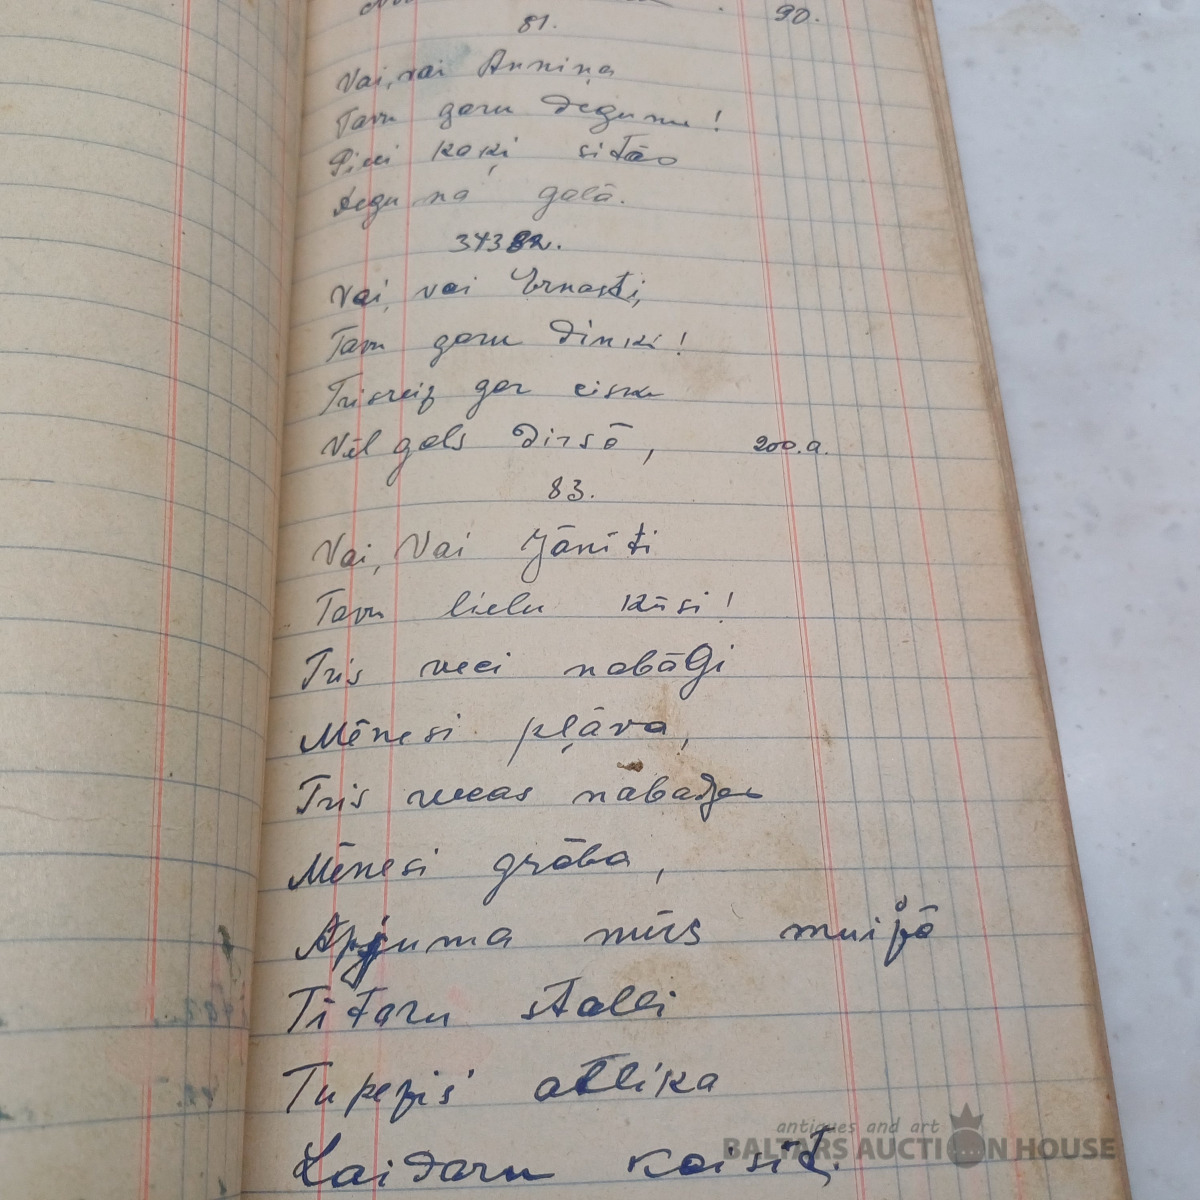 90.
81.
Vai, vai Anniņa
Tavu garu degunu!
Pieci kaķi sitās
deguna galā.
34382.
Vai, vai Ernesti,
Tavu garu dinki!
Trisreiz gar cisku
Vēl gals dirsā, 200.a.
83.
Vai, Vai Jānīti
Tavu lielu kūsi!
Tris veci nabāgi
Mēnesi pļāva,
Tris vecas nabadzes
Mēnesi grāba,
Apjuma mūs muižā
Tītaru stalli
Tupezis atlika
Laidaru kaisīt.
antiques and art
BALTARS AUCTION HOUSE